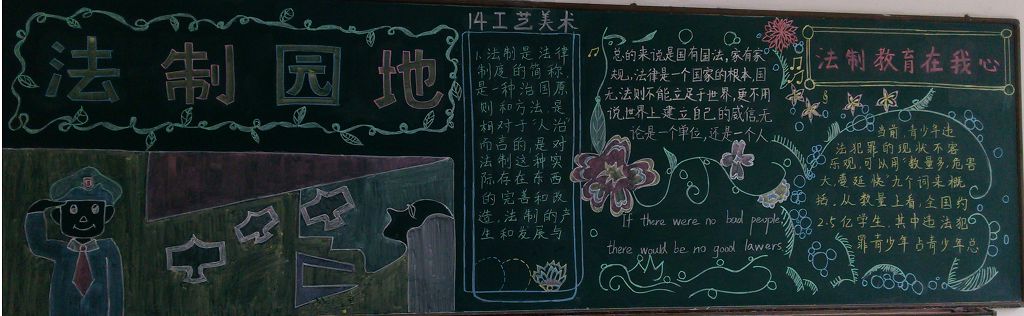 法制园地
14工艺美术
1.法制是法律
制度的简称,
是一种治国原
则和方法.是
相对于"人治"
而言的,是对
法制这种实
际存在东西
的完善和改
造.法制的产
生和发展与
总的来说是国有国法,家有家
规,法律是一个国家的根本,国
无法则不能立足于世界,更不用
说世界上建立自己的威信,无
论是一个单位,还是一个人
If there were no bad people,
there would be no good lawers
法制教育在我心
当前,青少年违
法犯罪的现状不容
乐观,可以用"数量多,危害
大,蔓延快"九个词来概
括,从数量上看,全国约
2.5亿学生.其中违法犯
罪青少年占青少年总